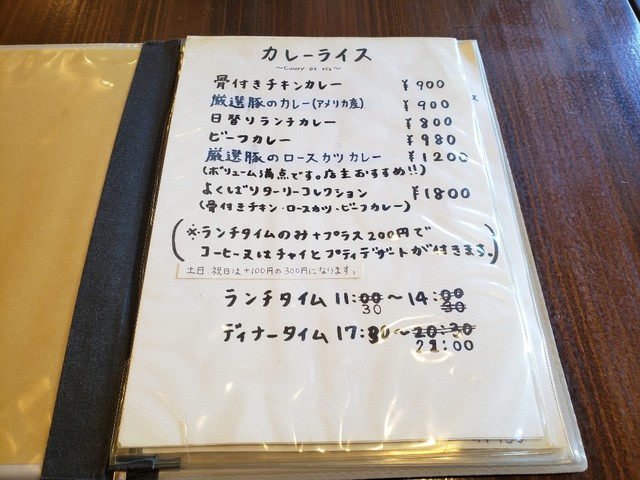 カレーライス
～Curry et riz～
骨付きチキンカレー ¥900
厳選豚のカレー(アメリカ産) ¥900
日替りランチカレー ¥800
ビーフカレー ¥980
厳選豚のロースカツカレー ¥1200
(ボリューム満点です。店主おすすめ!!)
よくばりターリーコレクション ¥1800
(骨付きチキン・ロースカツ・ビーフカレー)
※ランチタイムのみ+プラス200円で
コーヒー又はチャイとプティデザートが付きます。
土日、祝日は+100円の300円になります。
ランチタイム 11:00～14:00
30 30
ディナータイム 17:30～20:30
21:00